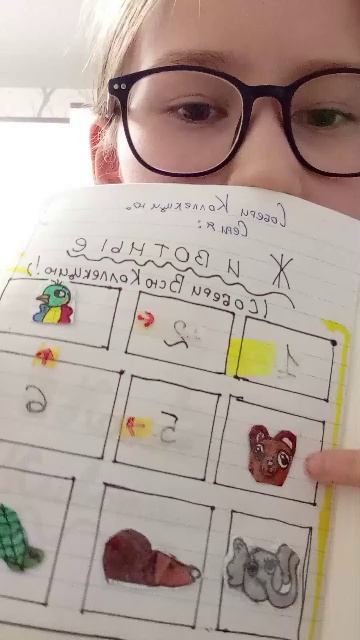 Собери Коллекцию.
Серия:
Животные
(Собери Всю Коллекцию!)
1 2
5 6